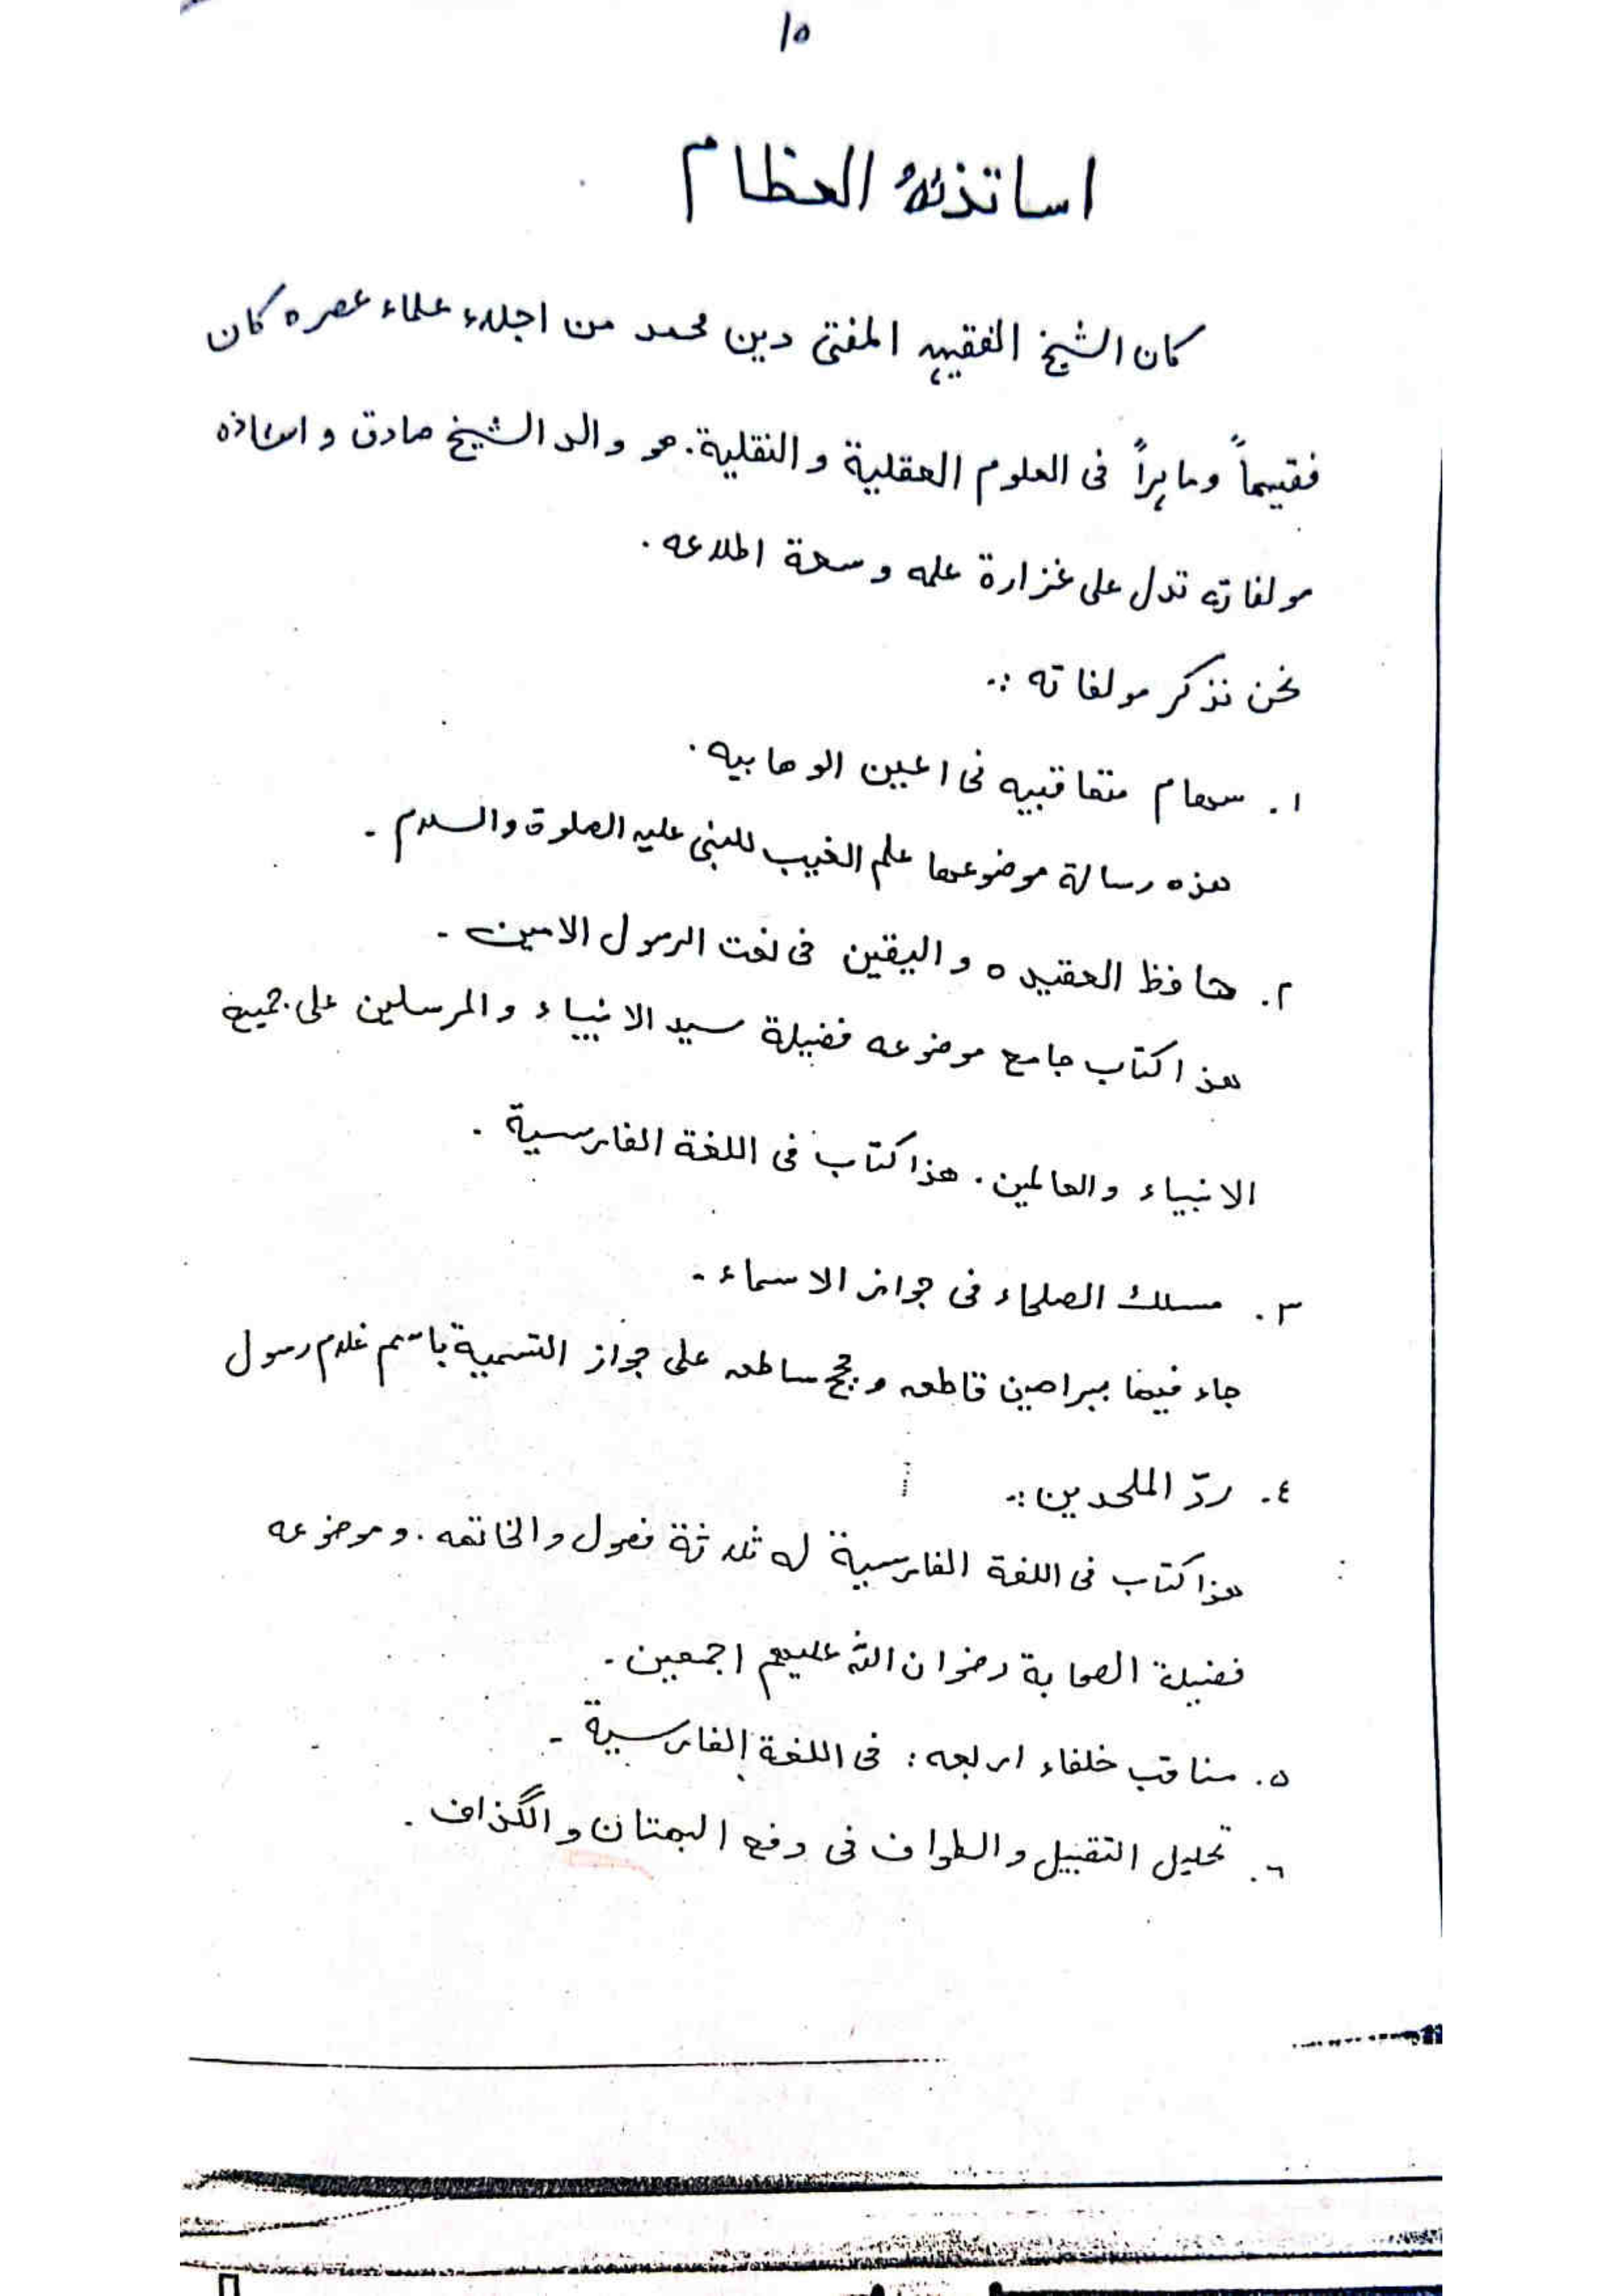 ١٥
اساتذتهُ العظام
كان الشيخ الفقيہ المفتى دين محمد من اجلاء علماء عصره كان
فقيهاً وماہراً فى العلوم العقلية و النقلية. هو والد الشيخ صادق و استاذه
مولفاته تدل على غزارة علمه و سعة اطلاعه .
نحن نذكر مولفاته :.
١. سهام متعاقبيه فى اعين الوهابيه .
هذه رسالة موضوعها علم الغيب للنبى عليه الصلوة والسلام -
٢. حافظ العقيده و اليقين فى نعت الرسول الامين -
هذا كتاب جامع موضوعه فضيلة سيد الانبياء و المرسلين على جميع
الانبياء والعالمين . هذا كتاب فى اللغة الفارسية .
٣. مسلك الصلحاء فى جواز الاسماء -
جاء فيها ببراهين قاطعه و حجج ساطعه على جواز التسمية باسم غلام رسول
٤. ردّ الملحدين :.
هذا كتاب فى اللغة الفارسية له ثلاثة فصول والخاتمه . و موضوعه
فضيلة الصحابة رضوان الله عليهم اجمعين -
٥. مناقب خلفاء اربعه : فى اللغة الفارسية -
٦. تحليل التقبيل و الطواف فى دفع البهتان و الگذاف .